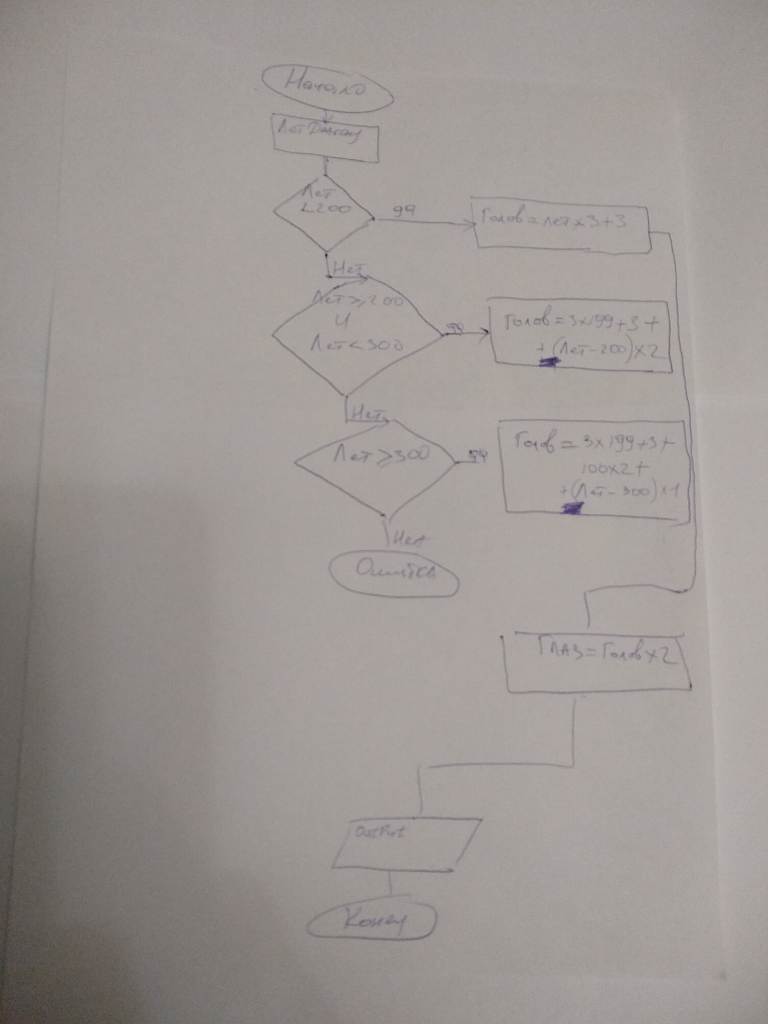 Начало
Лет Дракону
Лет
<200
да
Голов=лет×3+3
Нет
Лет≥200
И
Лет<300
да
Голов=3×199+3+
+(Лет-200)×2
Нет
Лет≥300
да
Голов=3×199+3+
100×2+
+(Лет-300)×1
Нет
Ошибка
Глаз=Голов×2
OutPut
Конец